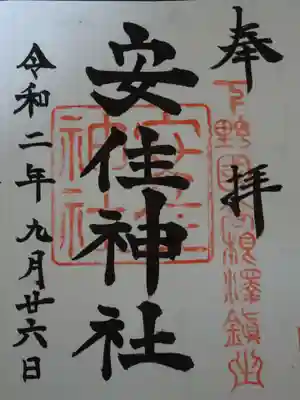 奉拝
下野國高根澤鎮坐
安住神社
安住神社
令和二年九月廿六日